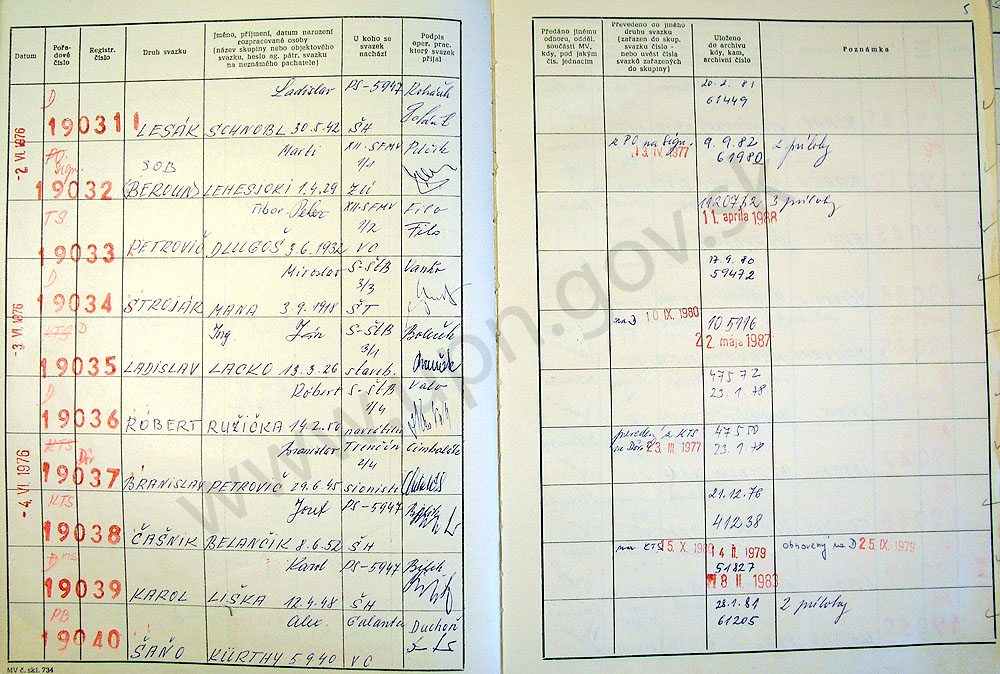 Datum
Pořadové číslo
Registr. číslo
Droh svazku
Jméno, příjmení, datum narození rozpracované osoby (název skupiny nebo objektového svazku, heslo ag. pátr. svazku na neznámého pachatele)
U koho se svazek nachází
Podpis oper. prac. který svazek přijal
D
Ladislav PS-5947
19031 LESÁK SCHNOBL 30.5.42 ŠH
-2. VI. 1976
Marti XII-SFMV
SOB 1/1
19032 (BEROUN) 1.4.29
TS
Tibor Peter XII-SFMV Filo
1/2 Filo
19033 PETROVIČ DLUGOŠ 3.6.1932 VC
D
Miroslav S-ŠtB Vanko
3/3
19034 STROJÁK MANA 3.9.1918 ŠT
-3. VI. 1976
KTS D
Ing. Ján S-ŠtB
3/1
19035 LADISLAV LACKO 13.3.26 staveb.
D
Róbert S-ŠtB Valo
1/4
19036 RÓBERT RUŽIČKA 14.2.50
KTS
Branislav Trenčín
2/4
19037 BRANISLAV PETROVIČ 29.6.45 sionisti
-4. VI. 1976
KTS
Jozef PS-5947
19038 ČAŠNIK BELANČIK 8.6.52 ŠH
D KTS
Karol PS-5947
19039 KAROL LIŠKA 12.4.48 ŠH
PB
Alex. Galanta Duchoň
19040 ŠAŇO KÜRTHY 5.9.40 VC
MV č. skl. 734
5
Předáno jinému odboru, odděl. součásti MV, kdy, pod jakým čís. jednacím
Převedeno do jiného druhu svazku (zařazen do skup. svazku číslo - nebo uvést čísla svazků zařazených do skupiny)
Uloženo do archivu kdy, kam, archivní číslo
Poznámka
20.2.81
61449
z PO na Sign. 9.9.82 2 prílohy
13. IV. 1977 61980
3 prílohy
11. apríla 1988
17.9.80
59472
na D 10 IX. 1980 105116
22. mája 1987
47572
23.1.78
prevedený z KTS 47550
23. III. 1977 23.1.78
21.12.76
41238
na KTS 15. X. 14 II. 1979 obnovený na D 25. IX. 1979
51827
18 II 1983
28.1.81 2 prílohy
61205
www.upn.gov.sk